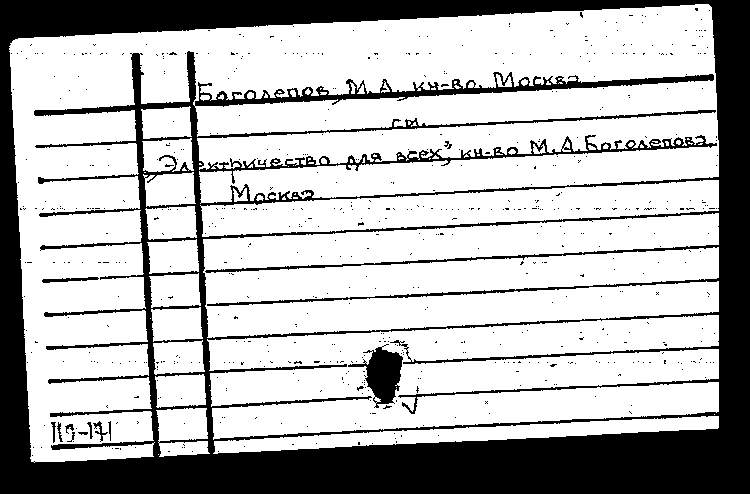 Боголепов, М. А., кн-во. Москва
см.
„Электричество для всех", кн-во М. А. Боголепова.
Москва